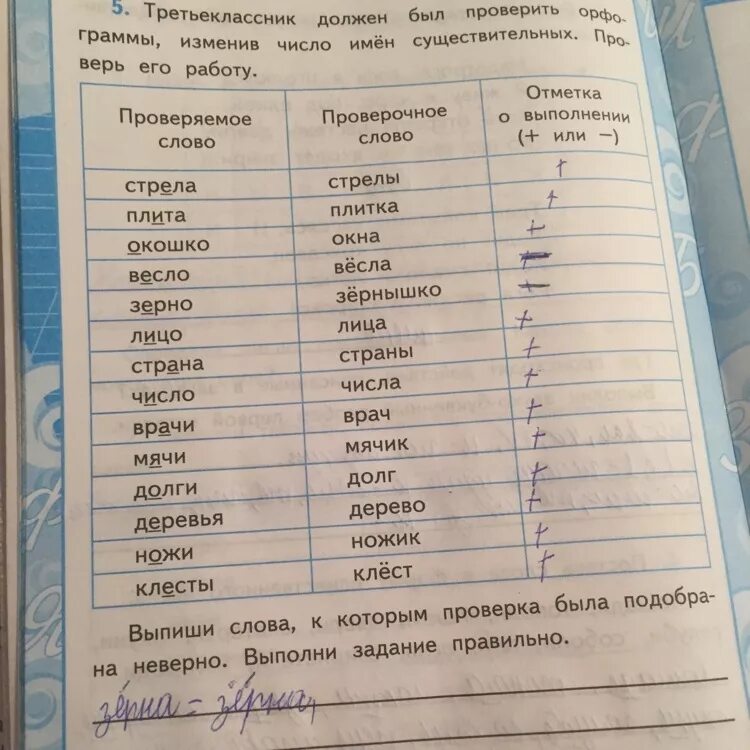 5. Третьеклассник должен был проверить орфо-
граммы, изменив число имён существительных. Про-
верь его работу.
Проверяемое слово Проверочное слово Отметка о выполнении (+ или −)
стрела стрелы +
плита плитка +
окошко окна +
весло вёсла
зерно зёрнышко
лицо лица +
страна страны +
число числа +
врачи врач +
мячи мячик +
долги долг +
деревья дерево +
ножи ножик +
клесты клёст +
Выпиши слова, к которым проверка была подобра-
на неверно. Выполни задание правильно.
зёрна = зёрна,